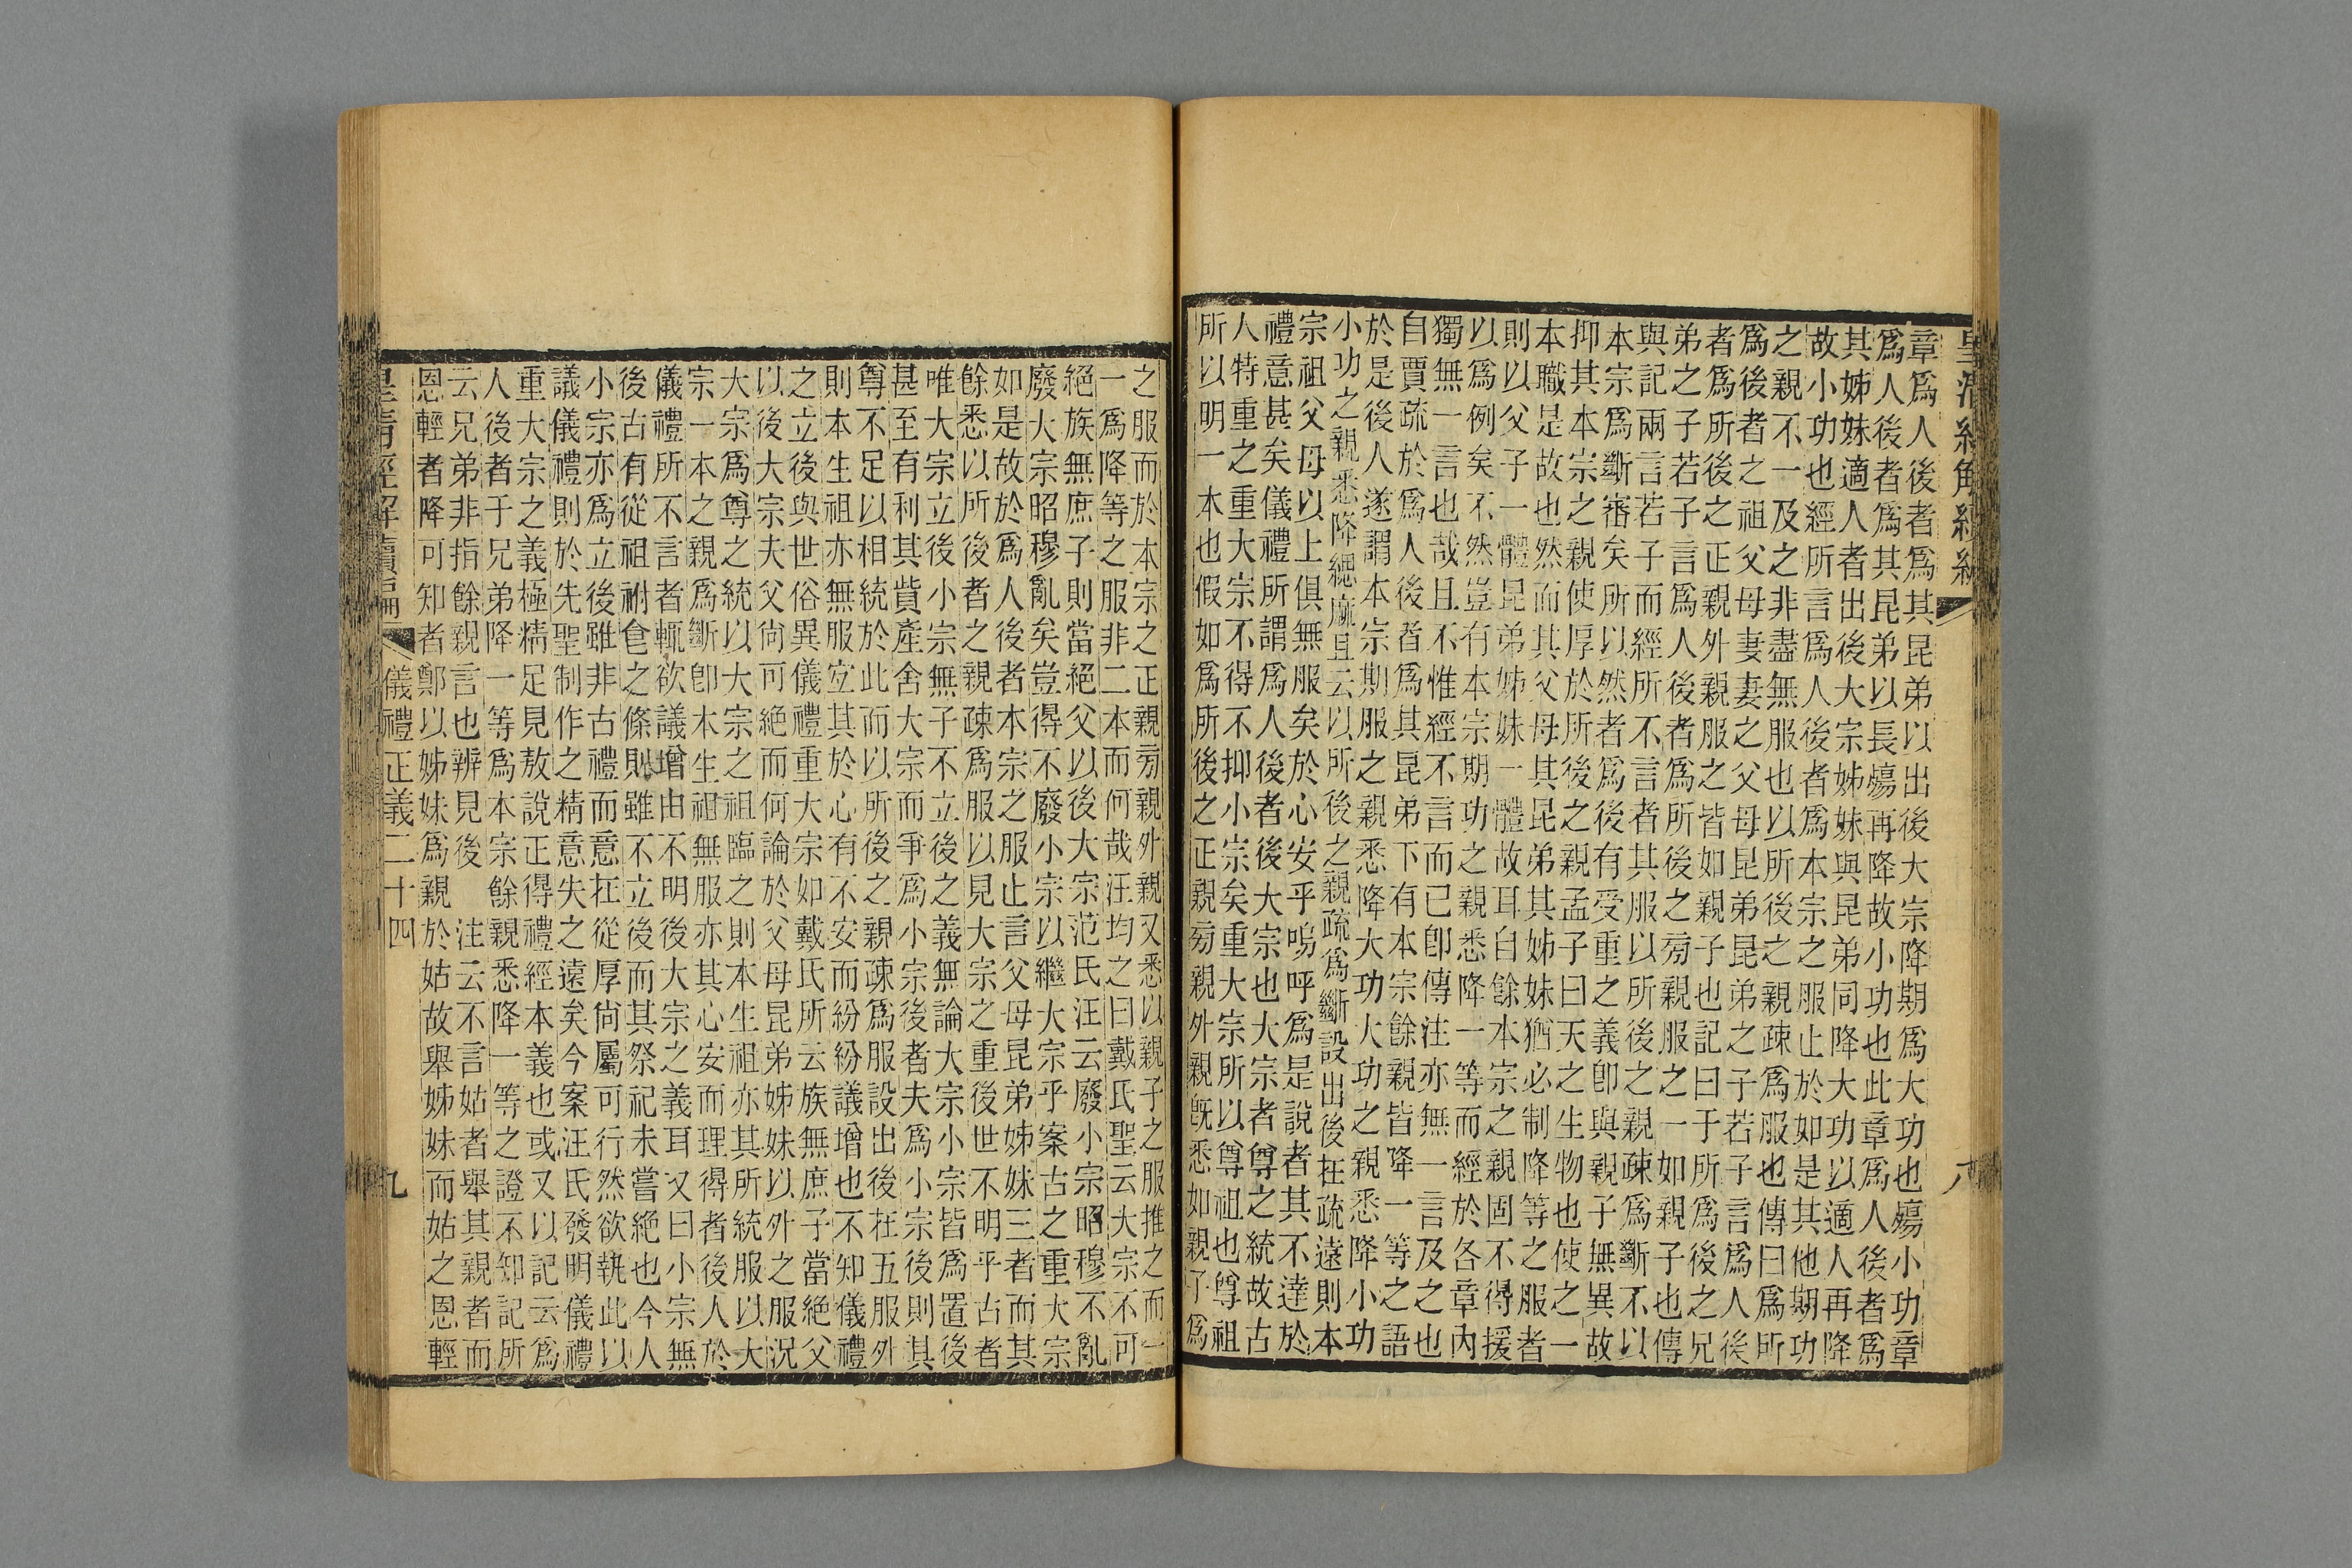 皇清經解續編 八
章爲人後者爲其昆弟以出後大宗降期爲大功也殤小功章
爲人後者爲其昆弟以長殤再降故小功也此章爲人後者爲
其姊妹適人者出後大宗姊妹與昆弟同降大功以適人再降
故小功也經所言爲人後者爲本宗之服止於如是其他期功
之親不一及之非盡無服也以所後之親疎爲服也傳曰爲所
爲後者之祖父母妻妻之父母昆弟昆弟之子若子言爲人後
者爲所後之正親外親服之皆如親子也記曰于所爲後之兄
弟之子若子言爲人後者爲所後之旁親服之一如親子也傳
與記兩言若子而經所不言者其服以所後之親疎爲斷不以
本宗爲斷審矣所以然者爲後有受重之義卽與親子無異故
抑其本宗之親使厚於所後之親孟子曰天之生物也使之一
本職是故也然而其父母其昆弟其姊妹猶必制降等之服者
則以父子一體昆弟姊妹一體故耳自餘本宗之親固不得援
以爲例矣不然豈有本宗期功之親悉降一等而經於各章內
獨無一言也哉且不惟經不言而已卽傳注亦無一言及之也
自賈疏於爲人後者爲其昆弟下有本宗餘親皆降一等之語
於是後人遂謂本宗期服之親悉降大功大功之親悉降小功
小功之親悉降緦麻且云以所後之親疏爲斷設出後在疏遠則本
宗祖父母以上俱無服矣於心安乎嗚呼爲是說者其不達於
禮意甚矣儀禮所謂爲人後者後大宗也大宗者尊之統故古
人特重之重大宗不得不抑小宗矣重大宗所以尊祖也尊祖
所以明一本也假如爲所後之正親旁親外親旣悉如親子爲
之服而於本宗之正親旁親外親又悉以親子之服推之而一
一爲降等之服非二本而何哉汪均之曰戴氏聖云大宗不可
絕族無庶子則當絕父以後大宗范氏汪云廢小宗昭穆不亂
廢大宗昭穆亂矣豈得不廢小宗以繼大宗乎案古之重大宗
如是故於爲人後者本宗之服止言父母昆弟姊妹三者而其
餘悉以所後者之親疎爲服以見大宗之重後世不明乎古者
唯大宗立後小宗無子不立後之義無論大宗小宗皆爲置後
甚至有利其貲產舍大宗而爭爲小宗後者夫爲小宗後則其
尊不足以相統於此而以所後之親疎爲服設出後在五服外
則本生祖亦無服宐其於心有不安而紛紛議增也不知儀禮
之立後與世俗異儀禮重大宗如戴氏所云族無庶子當絕父
以後大宗夫父尙可絕而何論於父母昆弟姊妹以外之服況
大宗爲尊之統以大宗之祖臨之則本生祖亦其所統服以大
宗一本之親爲斷卽本生祖無服亦其心安而理得者後人於
儀禮所不言者輒欲議增由不明後大宗之義耳又曰小宗無
後古有從祖祔食之條則雖不立後而其祭祀未嘗絕也今人
小宗亦爲立後雖非古禮而意在從厚尙屬可行然欲執此以
議儀禮則於先聖制作之精意失之遠矣今案汪氏發明儀禮
重大宗之義極精足見敖說正得禮經本義也或又以記云爲
人後者于兄弟降一等爲本宗餘親悉降一等之證不知記所
云兄弟非指餘親言也辨見後　注云不言姑者舉其親者而
恩輕者降可知者鄭以姊妹爲親於姑故舉姊妹而姑之恩輕
皇清經解續編 儀禮正義二十四 九